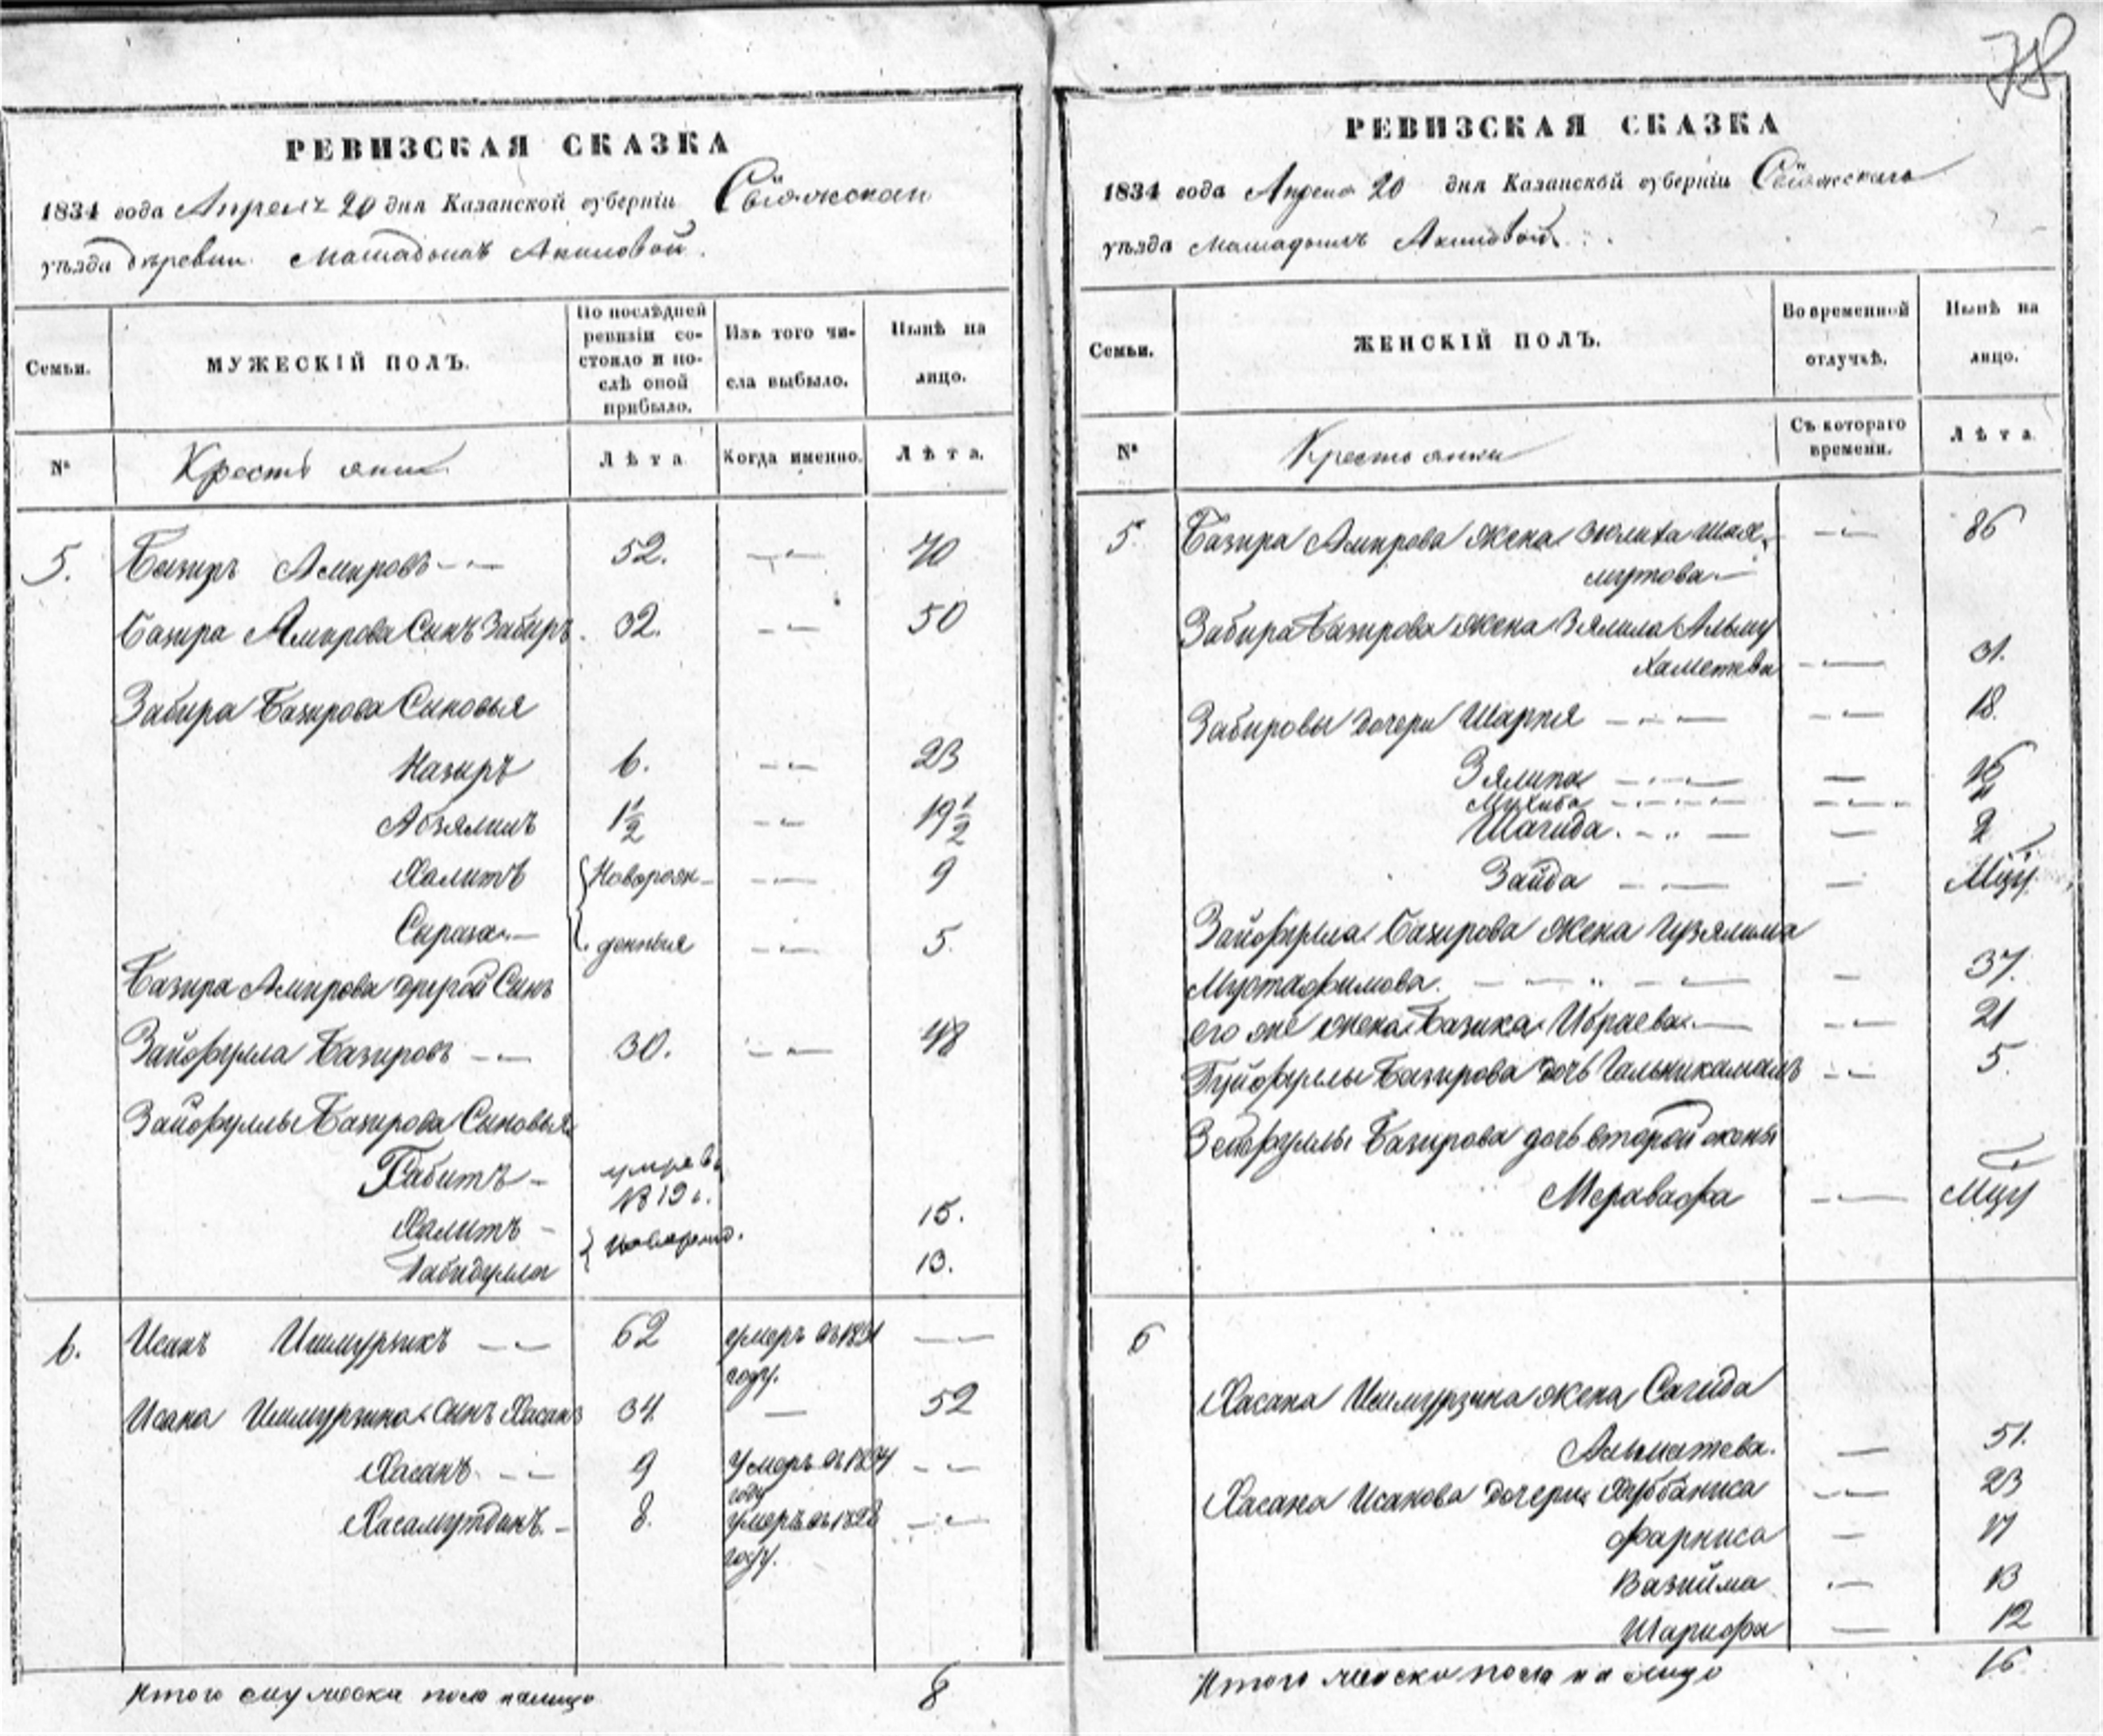 78
РЕВИЗСКАЯ СКАЗКА
1834 года Апреля 20 дня Казанской губерніи Свіяжскаго
уѣзда деревни Акиловой.
Семьи.
МУЖЕСКІЙ ПОЛЪ.
По послѣдней
ревизіи со-
стояло и по-
слѣ оной
прибыло.
Изъ того чи-
сла выбыло.
Нынѣ на
лицо.
№
Крестьяни
Лѣта
Когда именно.
Лѣта.
5. Базиръ Амировъ 52. 70
Базира Амирова Сынъ Забиръ 32. 50
Забира Базирова Сыновья
Назыръ 6. 23
Абзялилъ 1½ 19½
Халитъ Новорож- 9
Сыраза денныя 5.
Базира Амирова другой Сынъ
Зайфулла Базировъ 30. 48
Зайфуллы Базирова Сыновья
Габитъ
1819 г.
Халитъ 15.
Габидулла 13.
6. Исанъ 62 умеръ въ 1831
году.
Исана Ишмурзина сынъ Хасанъ 34 — 52
Хасанъ 9 Умеръ въ
году
Хасамутдинъ 8. умеръ въ
году.
Итого мужеска пола налицо 8
РЕВИЗСКАЯ СКАЗКА
1834 года Апреля 20 дня Казанской губерніи Свіяжскаго
уѣзда Акиловой
Семьи.
ЖЕНСКІЙ ПОЛЪ.
Во временной
отлучкѣ.
Нынѣ на
лицо.
№
Крестьянки
Съ котораго
времени.
Лѣта
5 Базира Амирова жена Зюлиха Шая-
мутова 86
Забира Базирова жена Зялила Альму
хаметева 31.
Забировы дочери Шарпя 18.
Зялипа
Мухиба
Шагида 2
Зайда
Зайфулла Базирова жена Гузялима
Мустафимова 37.
его же жена Базика Ибраева 21
Базирова дочь Гальникамалъ 5
Базирова дочь второй жены
Меравафа
6
Хасана Ишмурзина жена Сагида
Альматева. 51.
Хасана Исанова дочери Хуббаниса 23
Фарниса 17
Вазийма 13
Шарифа 12
Итого женска пола на лицо 16